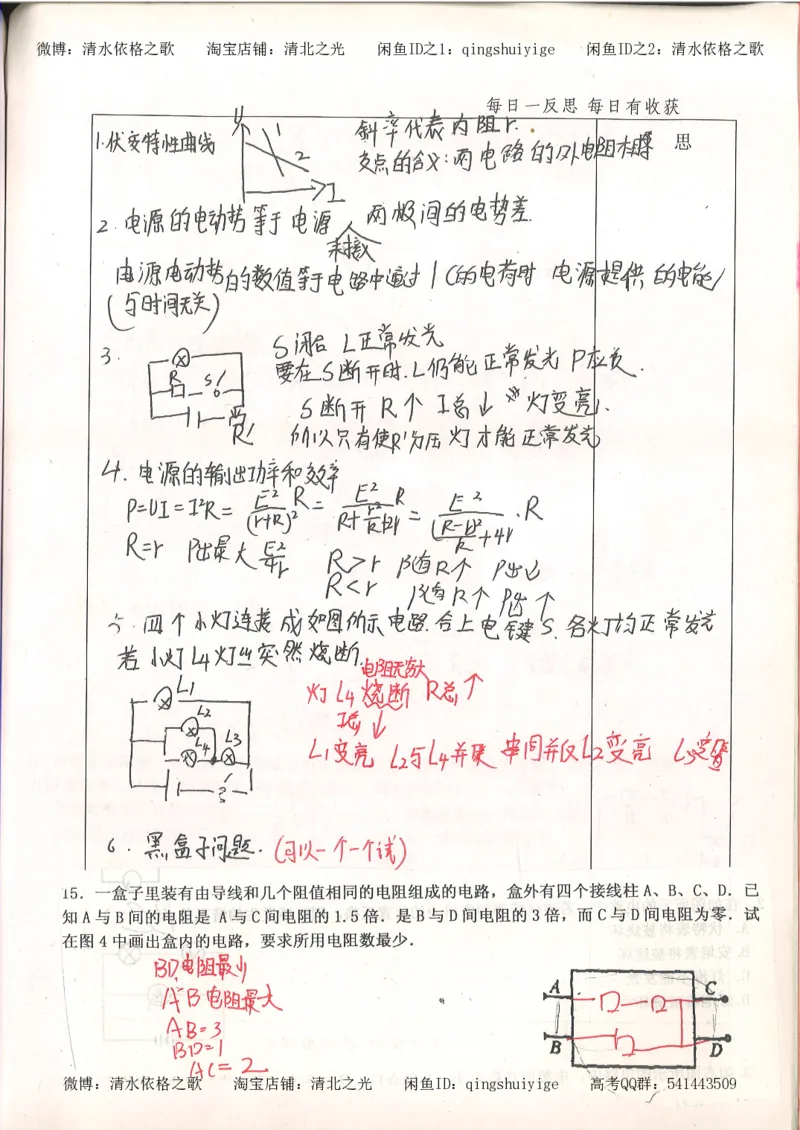 微博：清水依格之歌 淘宝店铺：清北之光 闲鱼ID之1：qingshuiyige 闲鱼ID之2：清水依格之歌
每日一反思 每日有收获
思
1.伏安特性曲线 U 1 2 I 斜率代表内阻r.
交点的含义:两电路的外电阻相等
2.电源的电动势等于电源 两极间的电势差.
未接入
电源电动势的数值等于电路中通过1C的电荷时 电源提供的电能
(与时间无关)
3. R S R' S闭合 L正常发光
要在S断开时.L仍能正常发光 P应负.
S断开 R↑ I总↓ 灯变亮.
所以只有使R'分压灯才能正常发光
4.电源的输出功率和效率
P=UI=I²R=E²/(r+R)² R=E²/(R+r²/R+2r)=E²/((R-r)²/R+4r)·R
R=r P出最大 E²/4r R>r 随R↑ P出↓
R<r 随R↑ P出↑
5.四个小灯连接成如图所示电路.合上电键S.各灯均正常发光
若小灯L4灯丝突然烧断.
L1 L2 L4 L3 S
电阻无穷大
灯L4烧断 R总↑
I总↓
L1变亮 L2与L4并联 串同并仅L2变亮 L3变暗
6.黑盒子问题.(可以一个一个试)
15．一盒子里装有由导线和几个阻值相同的电阻组成的电路，盒外有四个接线柱 A、B、C、D．已
知 A 与 B 间的电阻是 A 与 C 间电阻的 1.5 倍．是 B 与 D 间电阻的 3 倍，而 C 与 D 间电阻为零．试
在图 4 中画出盒内的电路，要求所用电阻数最少．
BD电阻最小
A B电阻最大
AB=3
BD=1
AC=2
A C
B D
微博：清水依格之歌 淘宝店铺：清北之光 闲鱼ID：qingshuiyige 高考QQ群：541443509